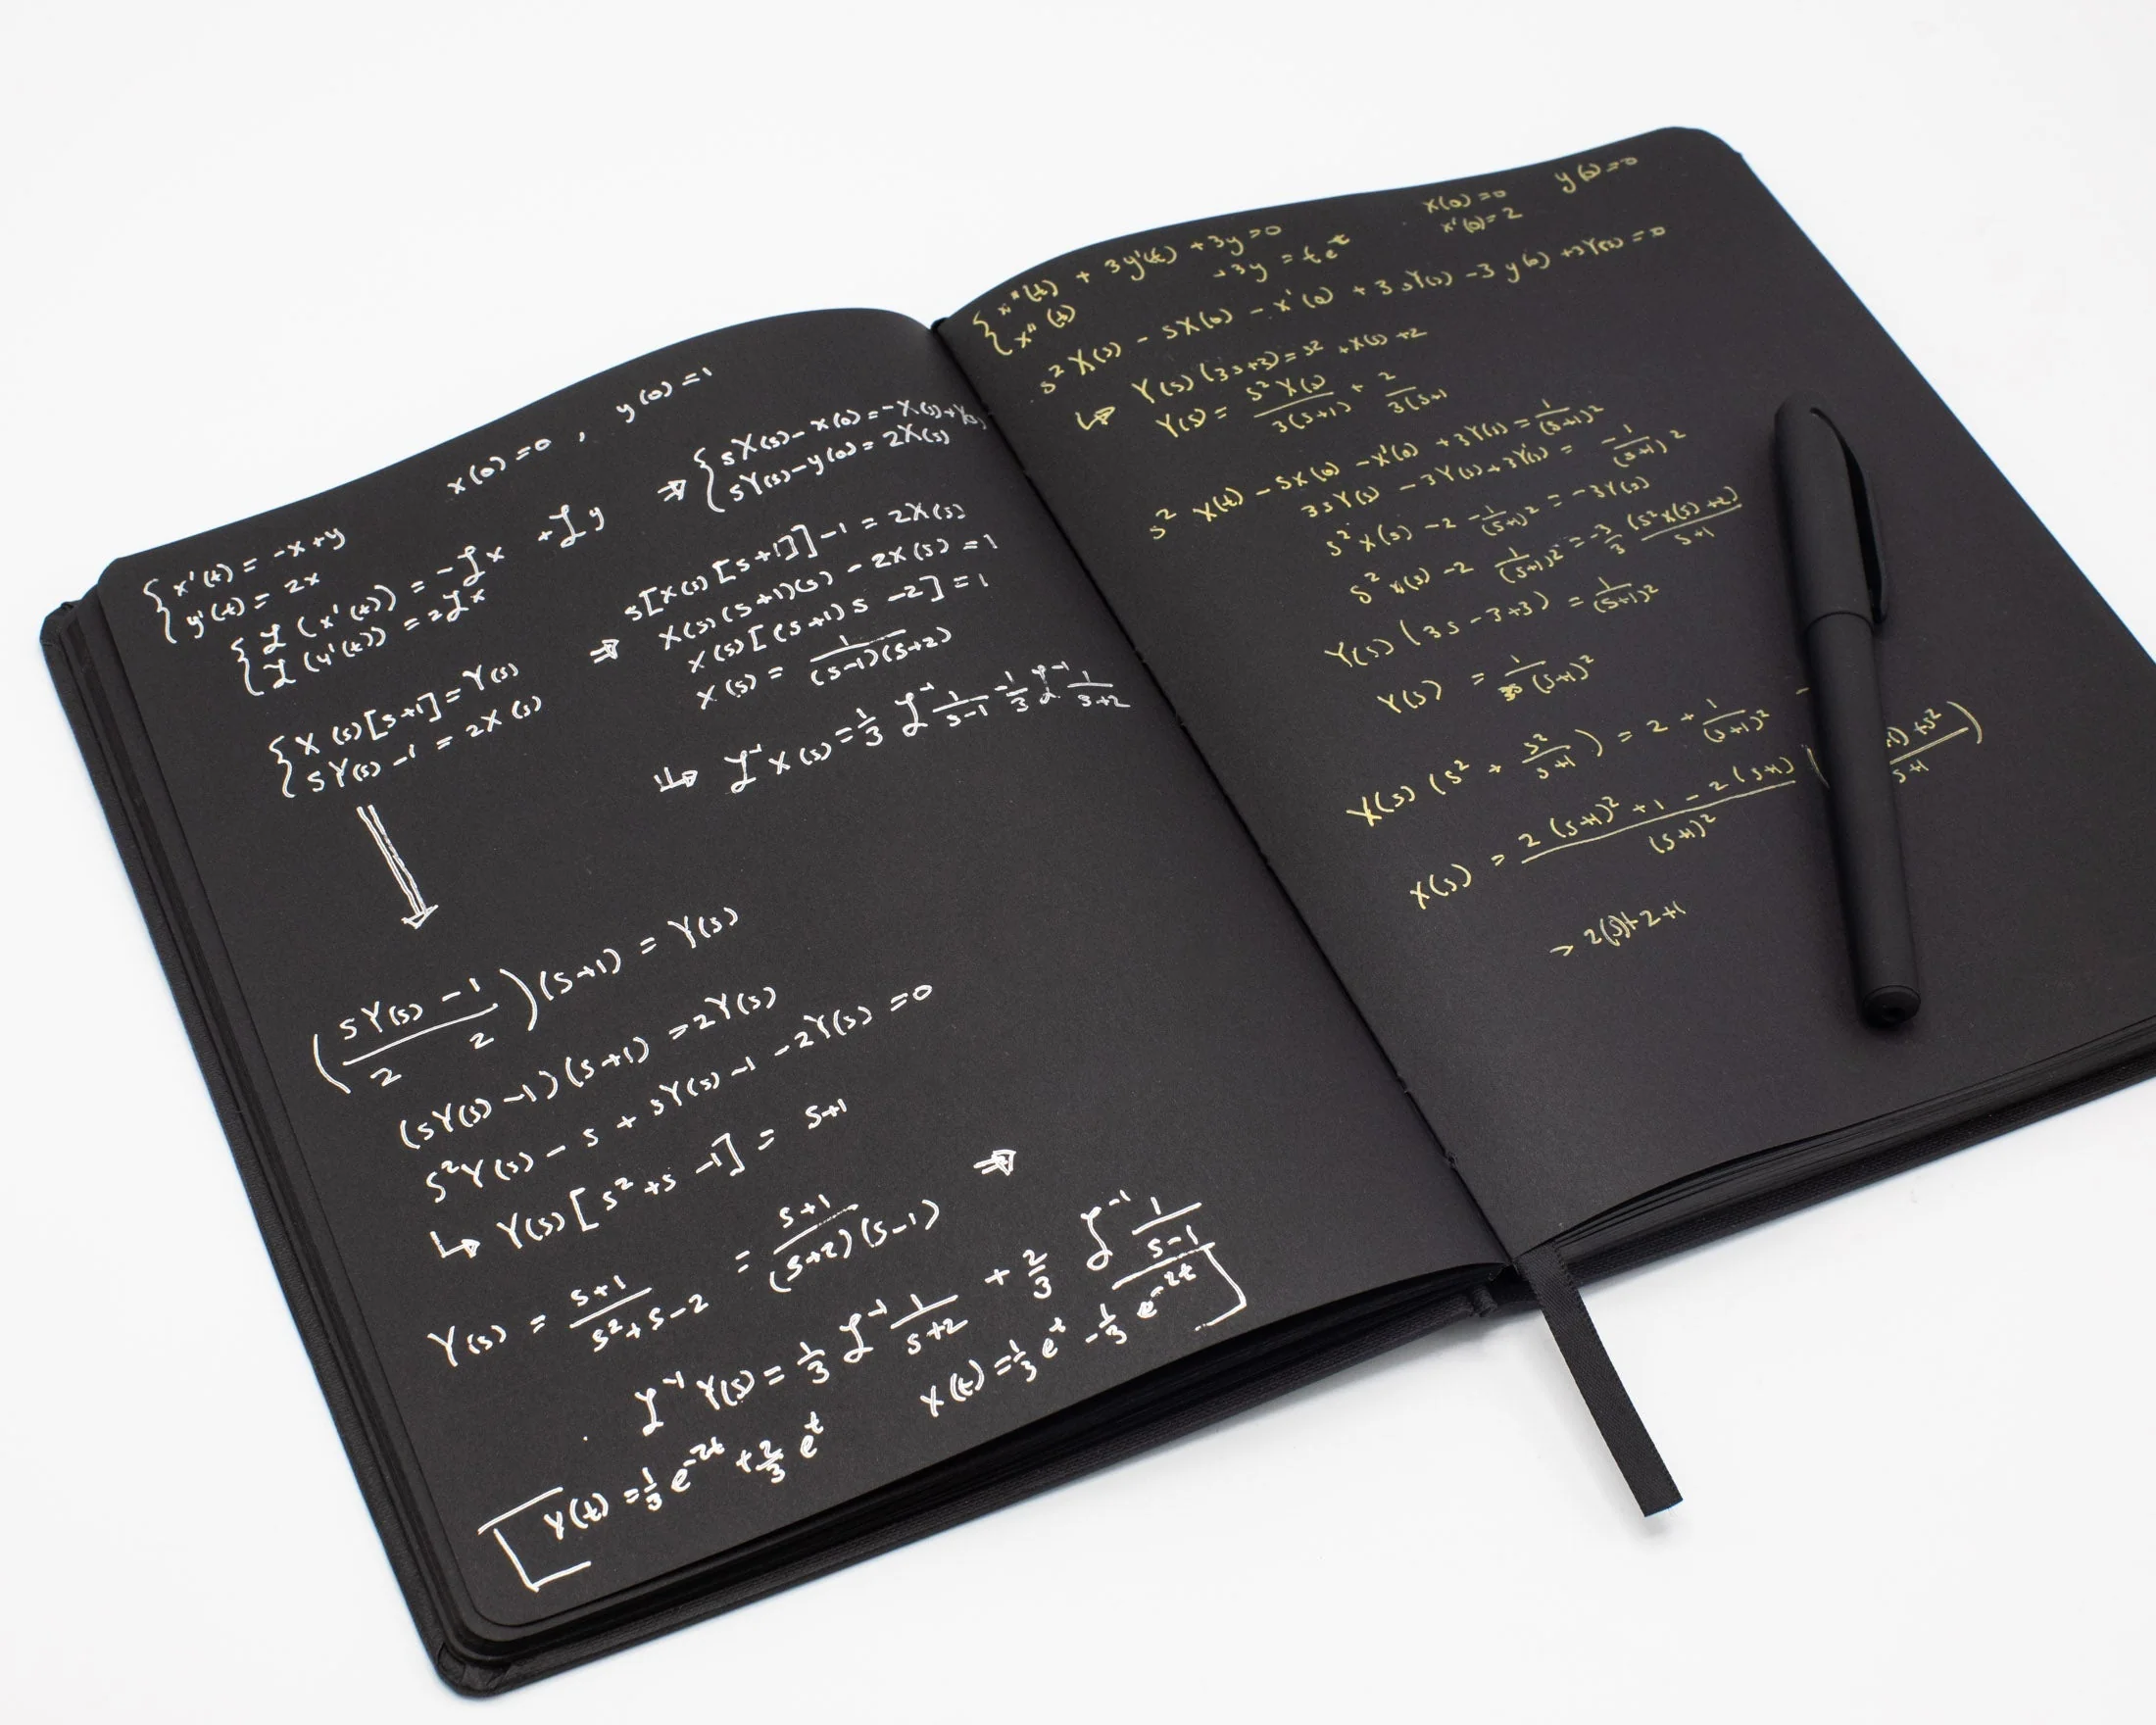 x(0)=0 , y(0)=1
{ x'(t) = -x+y
y'(t) = 2x
{ ℒ(x'(t)) = -ℒx +ℒy
ℒ(y'(t)) = 2ℒx
⇒ { sX(s)-x(0)=-X(s)+Y(s)
sY(s)-y(0)=2X(s)
{ X(s)[s+1]=Y(s)
sY(s)-1 = 2X(s)
⇒ s[X(s)[s+1]]-1 = 2X(s)
X(s)(s+1)(s) - 2X(s) = 1
X(s)[(s+1)s -2] = 1
X(s) = 1/((s-1)(s+2))
↳ ℒ⁻¹X(s) = 1/3 ℒ⁻¹ 1/(s-1) -1/3 ℒ⁻¹ 1/(s+2)
((sY(s)-1)/2 2)(s+1) = Y(s)
(sY(s)-1)(s+1) = 2Y(s)
s²Y(s) - s + sY(s) -1 -2Y(s) = 0
↳ Y(s)[s²+s -1] = s+1
⇒
Y(s) = (s+1)/(s²+s-2) = (s+1)/((s+2)(s-1))
ℒ⁻¹Y(s) = 1/3 ℒ⁻¹ 1/(s+2) + 2/3 ℒ⁻¹ 1/(s-1)
Y(t) = 1/3 e^-2t + 2/3 e^t
X(t) = 1/3 e^t - 1/3 e^-2t
x(0)=0 y(0)=0
x'(0)=2
{ x''(t) + 3y'(t) +3y = 0
x''(t) +3y = te^t
s²X(s) - sX(0) - x'(0) + 3sY(s) -3y(0) +3Y(s) = 0
↳ Y(s)(3s+3) = s² +X(s) +2
Y(s) = s²X(s)/3(s+1) + 2/3(s+1
s² X(t) - sX(0) -x'(0) +3Y(s) = 1/(s+1)²
3sY(s) -3Y(s)+3Y(s) = -1/(s+1)²
s²X(s) -2 -1/(s+1)² = -3Y(s)
s²X(s) -2 1/(s+1)² = -3/3 (s²X(s)+2)/(s+1)
Y(s)(3s-3+3) = 1/(s+1)²
Y(s) = 1/3s(s+1)²
X(s)(s² + s²/(s+1)) = 2 + 1/(s+1)² -
X(s) = (2(s+1)²+1-2(s+1))/(s+1)²
→ 2(s)+2+1